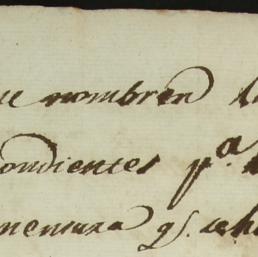 ue nombren
ondientes p.ª
mensura qᵉ. se h